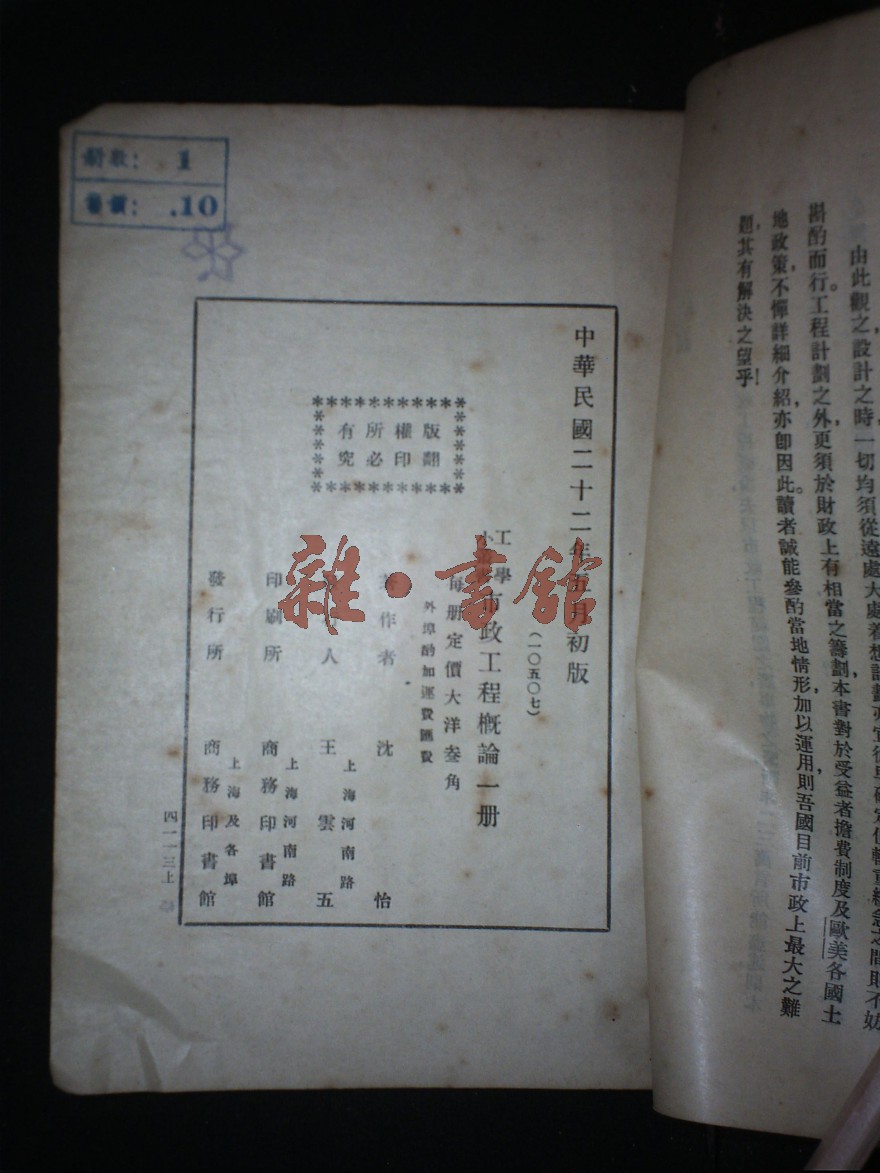 由此觀之設計之時，一切均須從遠處大處着想
斟酌而行。工程計劃之外，更須於財政上有相當之籌劃，本書對於受益者擔費制度及歐美各國土
地政策，不憚詳細介紹，亦卽因此。讀者誠能參酌當地情形，加以運用，則吾國目前市政上最大之難
題，其有解決之望乎！
册數： 1
書價： .10
中華民國二十二年五月初版
（一〇五〇七）
工學
市政工程概論一册
每册定價大洋叁角
外埠酌加運費匯費
版權所有
翻印必究
著作者 沈怡
人 王雲五
上海河南路
印刷所 商務印書館
上海河南路
發行所 商務印書館
上海及各埠
四一一三上
雜·書館